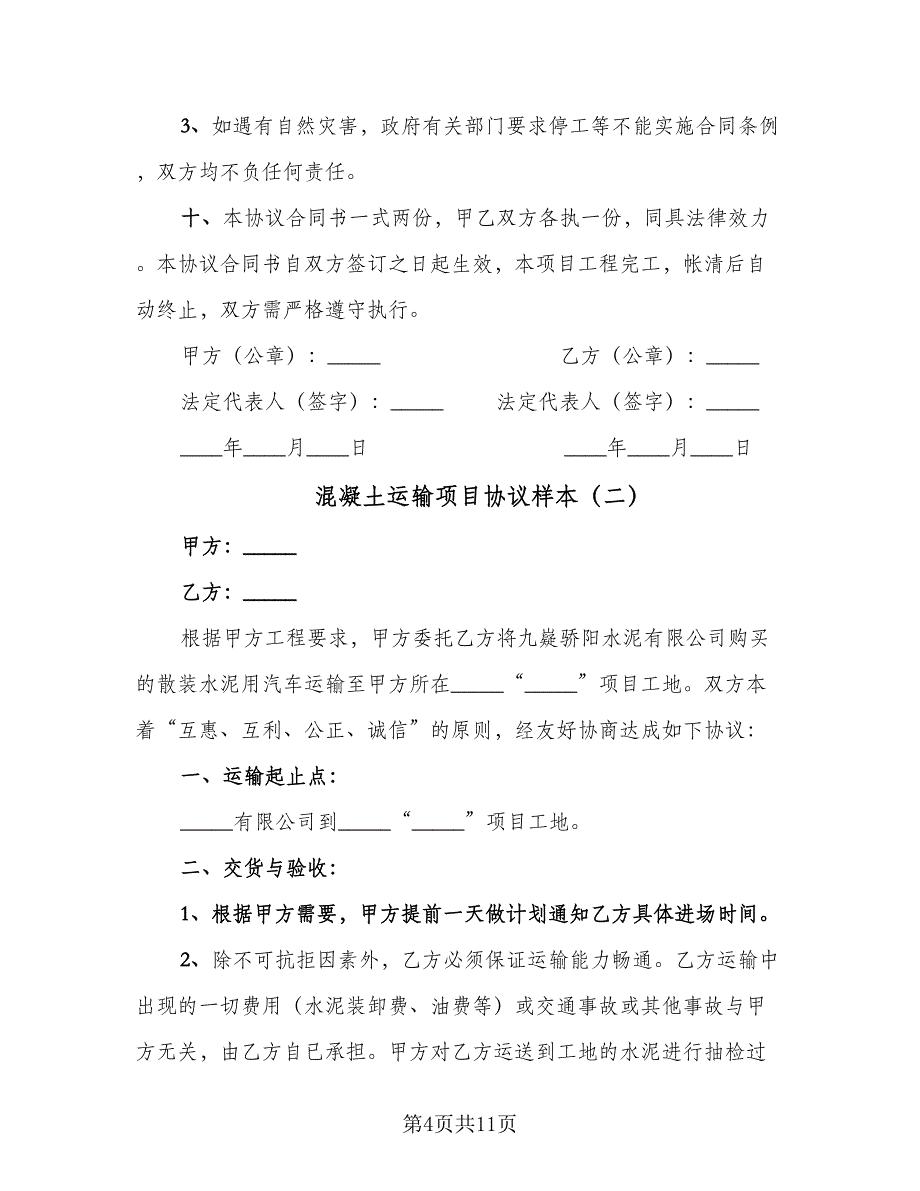 3、如遇有自然灾害，政府有关部门要求停工等不能实施合同条例
，双方均不负任何责任。
十、本协议合同书一式两份，甲乙双方各执一份，同具法律效力
。本协议合同书自双方签订之日起生效，本项目工程完工，帐清后自
动终止，双方需严格遵守执行。
甲方（公章）：_____ 乙方（公章）：_____
法定代表人（签字）：_____ 法定代表人（签字）：_____
____年____月____日 ____年____月____日
混凝土运输项目协议样本（二）
甲方：_____
乙方：_____
根据甲方工程要求，甲方委托乙方将九嶷骄阳水泥有限公司购买
的散装水泥用汽车运输至甲方所在_____“_____”项目工地。双方本
着“互惠、互利、公正、诚信”的原则，经友好协商达成如下协议：
一、运输起止点：
_____有限公司到_____“_____”项目工地。
二、交货与验收：
1、根据甲方需要，甲方提前一天做计划通知乙方具体进场时间。
2、除不可抗拒因素外，乙方必须保证运输能力畅通。乙方运输中
出现的一切费用（水泥装卸费、油费等）或交通事故或其他事故与甲
方无关，由乙方自已承担。甲方对乙方运送到工地的水泥进行抽检过
第4页共11页